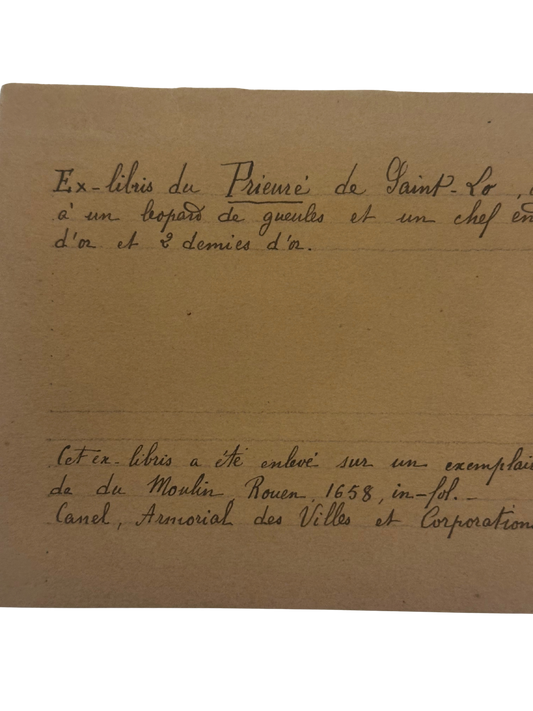 Ex-libris du Prieuré de Saint-Lo,
à un leopard de gueules et un chef
d'or et 2 demies d'or.
Cet ex-libris a été enlevé sur un exemplai
de du Moulin, Rouen, 1658, in-fol.-
Canel, Armorial des Villes et Corporation